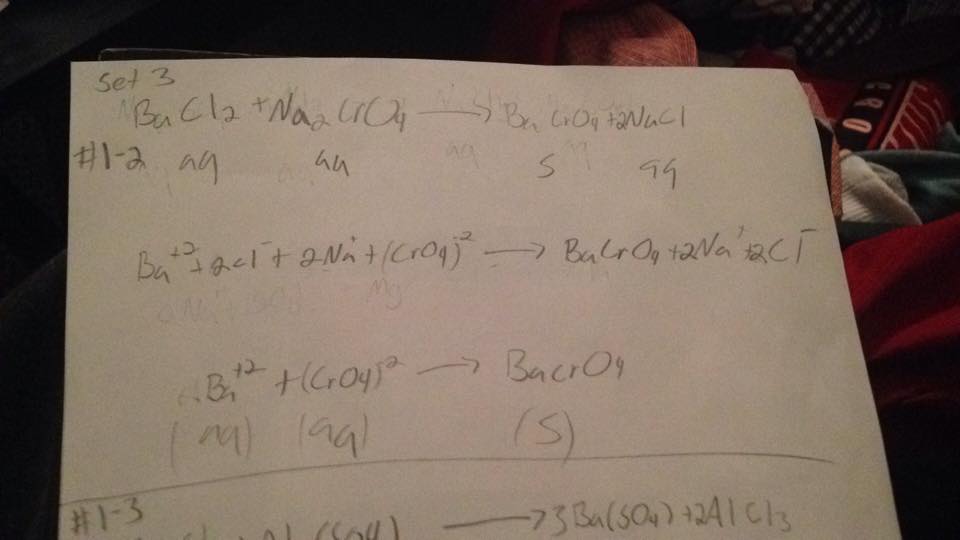 Set 3
BaCl2 + Na2CrO4 → BaCrO4 + 2NaCl
#1-2 aq aq s aq
Ba+2 + 2Cl- + 2Na+ + (CrO4)-2 → BaCrO4 + 2Na+ + 2Cl-
Ba+2 + (CrO4)-2 → BacrO4
(aq) (aq) (S)
#1-3
(SO4) → 3Ba(SO4) + 2AlCl3